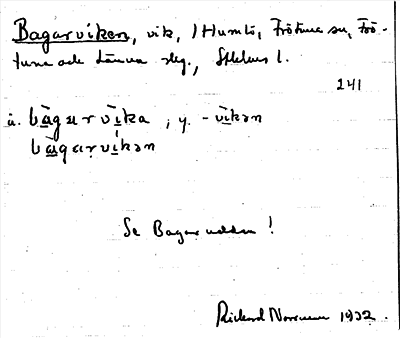 Bagarviken, vik, i Humlö, Frötuna sn, Frö-
tuna och Länna slg., Sthlms l.
241
ä. bagarvika, y. -vikən
bagarvikən
Se Bagarudden!
Rickard Norrman 1932.